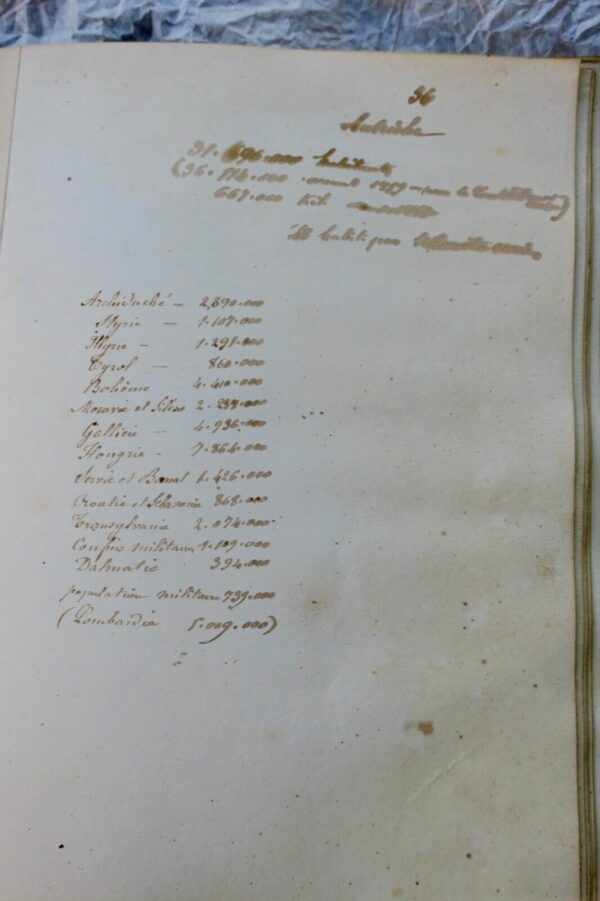 36
Autriche
31.696.000 habitants
(36.174.000 avant 1859 -
667.000 Kil.
habit. par
Archiduché - 2.890.000
Styrie - 1.107.000
Illyrie - 1.291.000
Tyrol - 860.000
Bohême 4.410.000
Moravie et Silésie 2.238.000
Gallicie - 4.936.000
Hongrie - 7.864.000
Servie et Banat 1.426.000
Croatie et Sclavonie 868.000
Transylvanie 2.074.000
Confins militaires 1.109.000
Dalmatie 394.000
population militaire 739.000
(Lombardie 5.009.000)